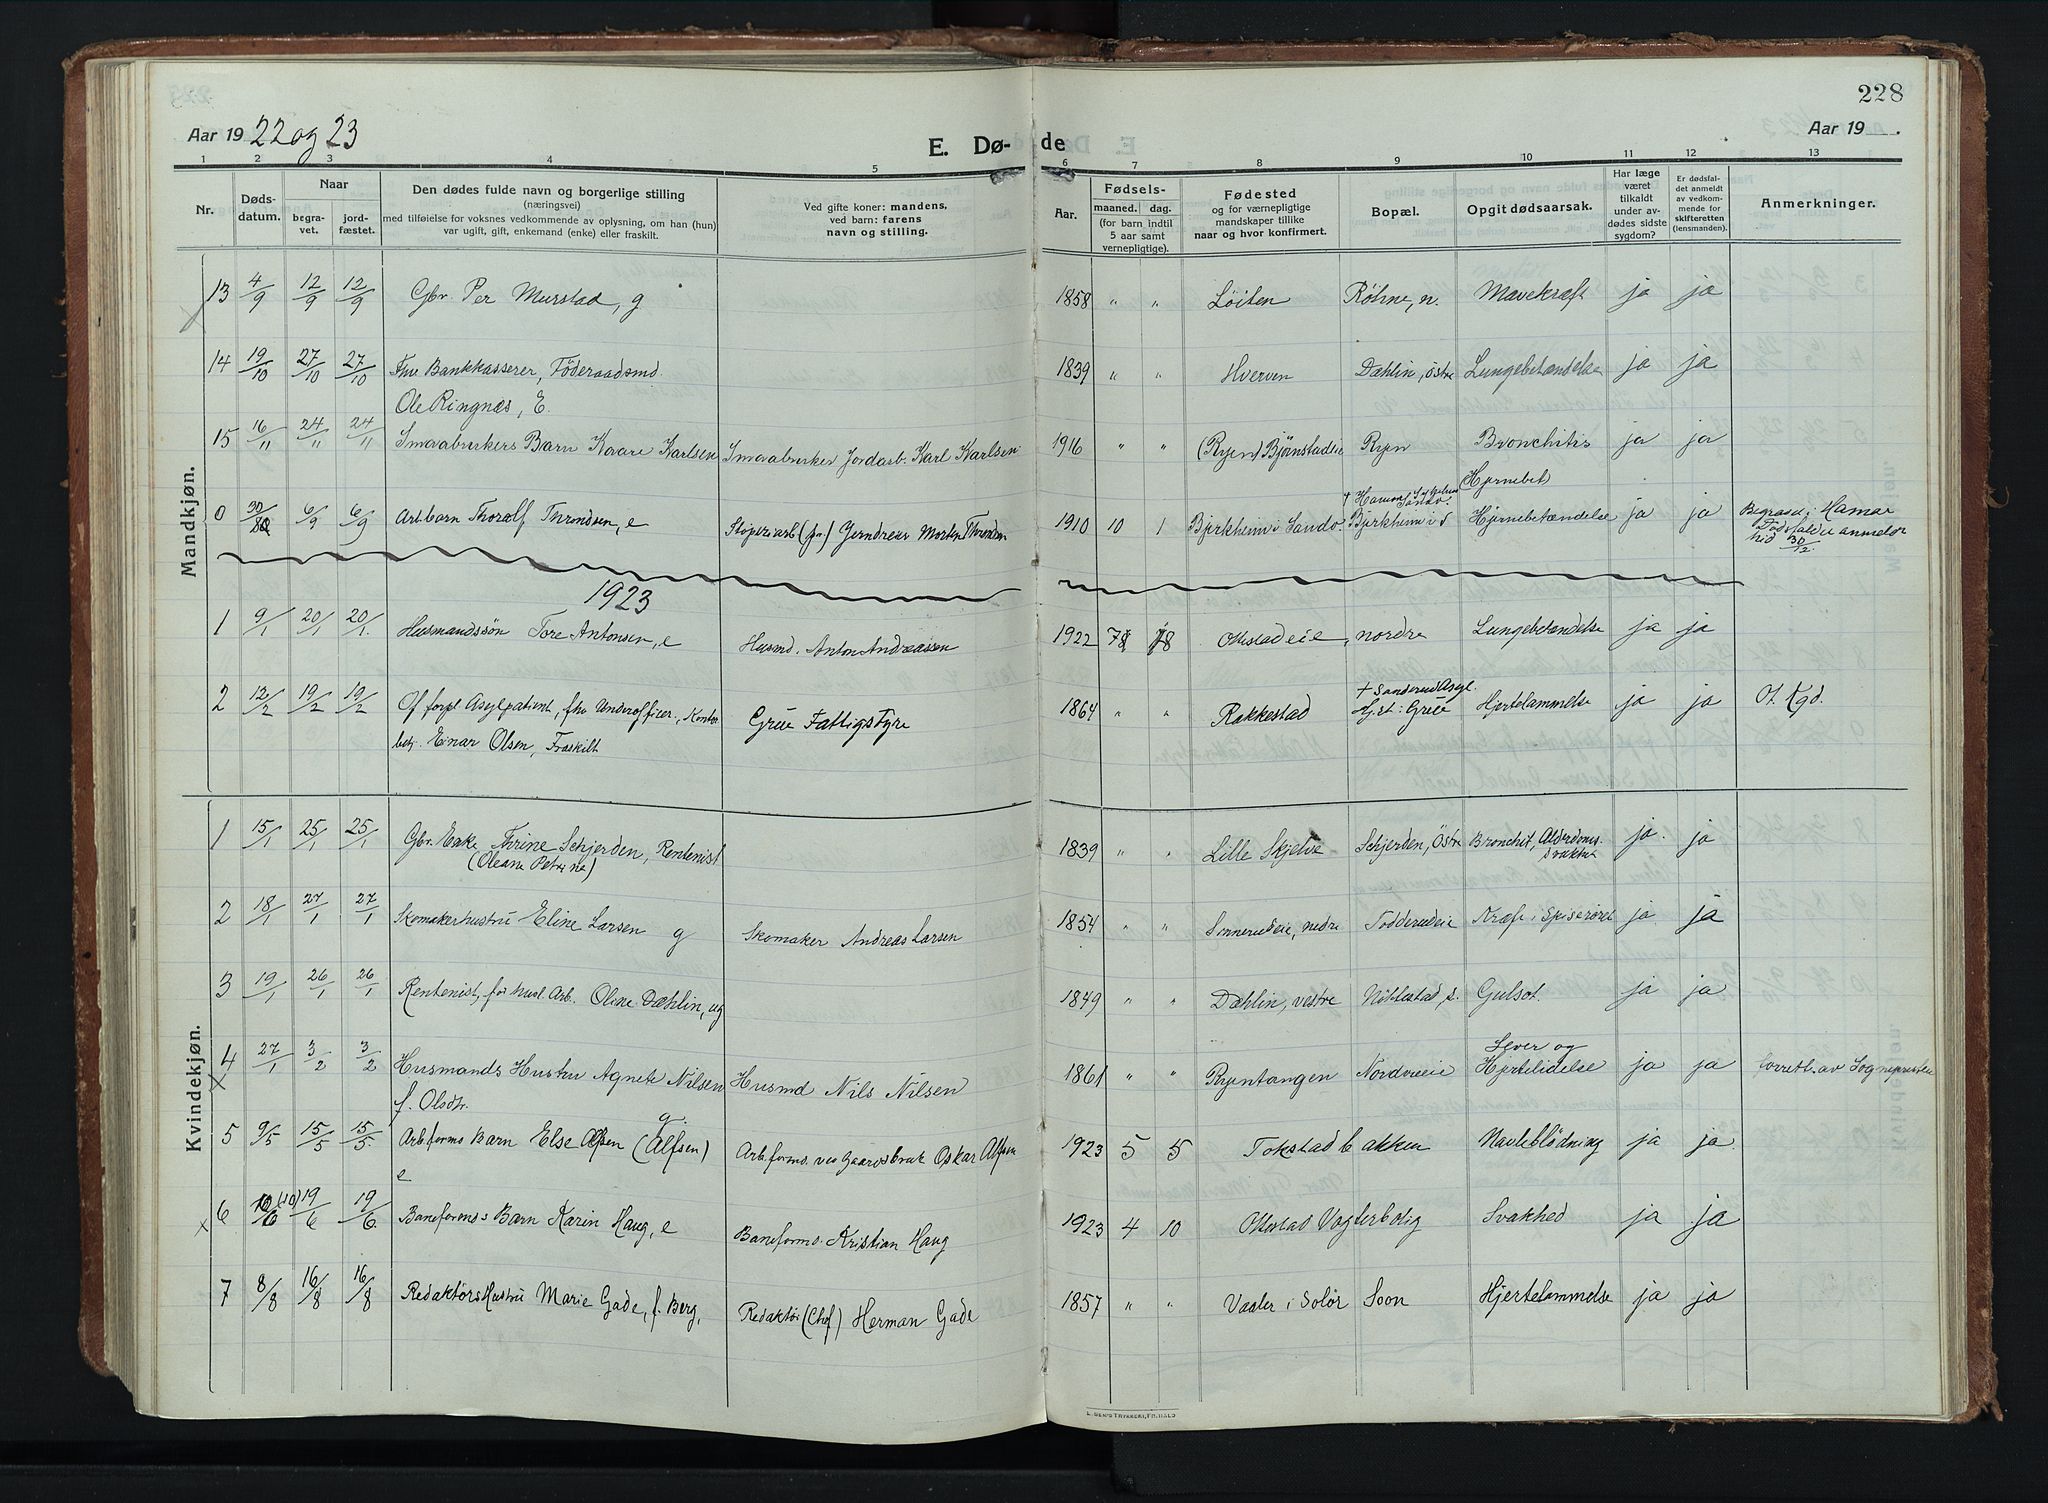 228
Aar 19 22 og 23
E. Dø-
de
Aar 19 .
1 2 3 4 5 6 7 8 9 10 11 12 13
Nr.
Døds-
datum.
Naar
begra-
vet.
jord-
fæstet.
Den dødes fulde navn og borgerlige stilling
(næringsvei)
med tilføielse for voksnes vedkommende av oplysning, om han (hun)
var ugift, gift, enkemand (enke) eller fraskilt.
Ved gifte koner: mandens,
ved barn: farens
navn og stilling.
Aar.
Fødsels-
maaned. dag.
(for barn indtil
5 aar samt
vernepligtige).
Fødested
og for værnepligtige
mandskaper tillike
naar og hvor konfirmert.
Bopæl.
Opgit dødsaarsak.
Har læge
været
tilkaldt
under av-
dødes sidste
sygdom?
Er dødsfal-
det anmeldt
av vedkom-
mende for
skifteretten
(lensmanden).
Anmerkninger.
Mandkjøn.
13 4/9 12/9 12/9 Gbr. Per Murstad, g 1858 " " Löiten Röhne, n. Mavekræft ja ja
14 19/10 27/10 27/10 Fhv Bankkasserer, Föderaadsmd. 1839 " " Hverun Dæhlin, östre Lungebetændelse ja ja
Ole Ringnæs, E.
15 16/11 24/11 24/11 Smaabrukers Barn Kaare Karlsen Smaabruker Jordarb. Karl Karlsen 1916 " " (Ryen) Bjørnstadeie Ryen Bronchitis ja ja
Hjernebet
0 30/8 6/9 6/9 Arb.barn Thoralf Throndsen, e Støperiarb (jr.) Gerndreier Morten Throndsen 1910 10 1 Bjerkheim i Sando + Hamar Sygehus Bjerkheim i S Hjernebetændelse ja ja Begravet i Hamar
Dödsfaldet anmeldt
hid 30/12.
1923
1 9/1 20/1 20/1. Husmandssön Tore Antonsen, e Husmd. Anton Andreassen 1922 7 18 Ottestadeie, nordre Lungebetændelse ja ja
2 12/2 19/2 19/2 Of forpl Asylpatient, fhv Underofficer, Kontor- Grue Fattigstyre 1864 " " Rakkestad + Sanderud Asyl. Hjst: Grue Hjertelammelse ja ja Ot. Kgd.
betj. Einar Olsen, Fraskilt
Kvindekjøn.
1 15/1 25/1 25/1 Gbr. Enke Thrine Schjerden, Rentenist 1839 " " Lille Skjelve Schjerden, Östre Bronchit, Alderdoms- ja ja
(Oleane Petrine) svakhet
2 18/1 27/1 27/1 Skomakerhustru Eline Larsen g Skomaker Andreas Larsen 1854 " " Sinnerudeie, nedre Todderudeie Kræft i Spiserøret ja ja
3 19/1 26/1 26/1 Rentenist, for husl Arb. Oline Dæhlin, ug 1849 " " Dæhlin, vestre Nöttestad, s. Gulsot. ja ja
4 27/1 3/2 3/2 Husmands Hustru Agnete Nilsen Husmd Nils Nilsen 1861 " " Ryentangen Nordvieie Lever og Hjertelidelse ja ja forrett. av Sognepresten
f. Olsdtr. g.
5 9/5 15/5 15/5. Arb.forms Barn Else Alfsen (Alfsen) Arb.formd. ved Gaardsbruk Oskar Alfsen 1923 5 5 Tokstad bakken Navleblödning ja ja
e
6 (10)/6 19/6 19/6 Baneforms Barn Karin Haug, e Baneformd. Kristian Haug 1923 4 10 Ottestad Vogterbolig Svakhed ja ja
7 8/8 16/8 16/8 Redaktørs Hustru Marie Gade, f. Berg, Redaktør (Chef) Herman Gade 1857 " " Vaaler i Solör Soon Hjertelammelse ja ja